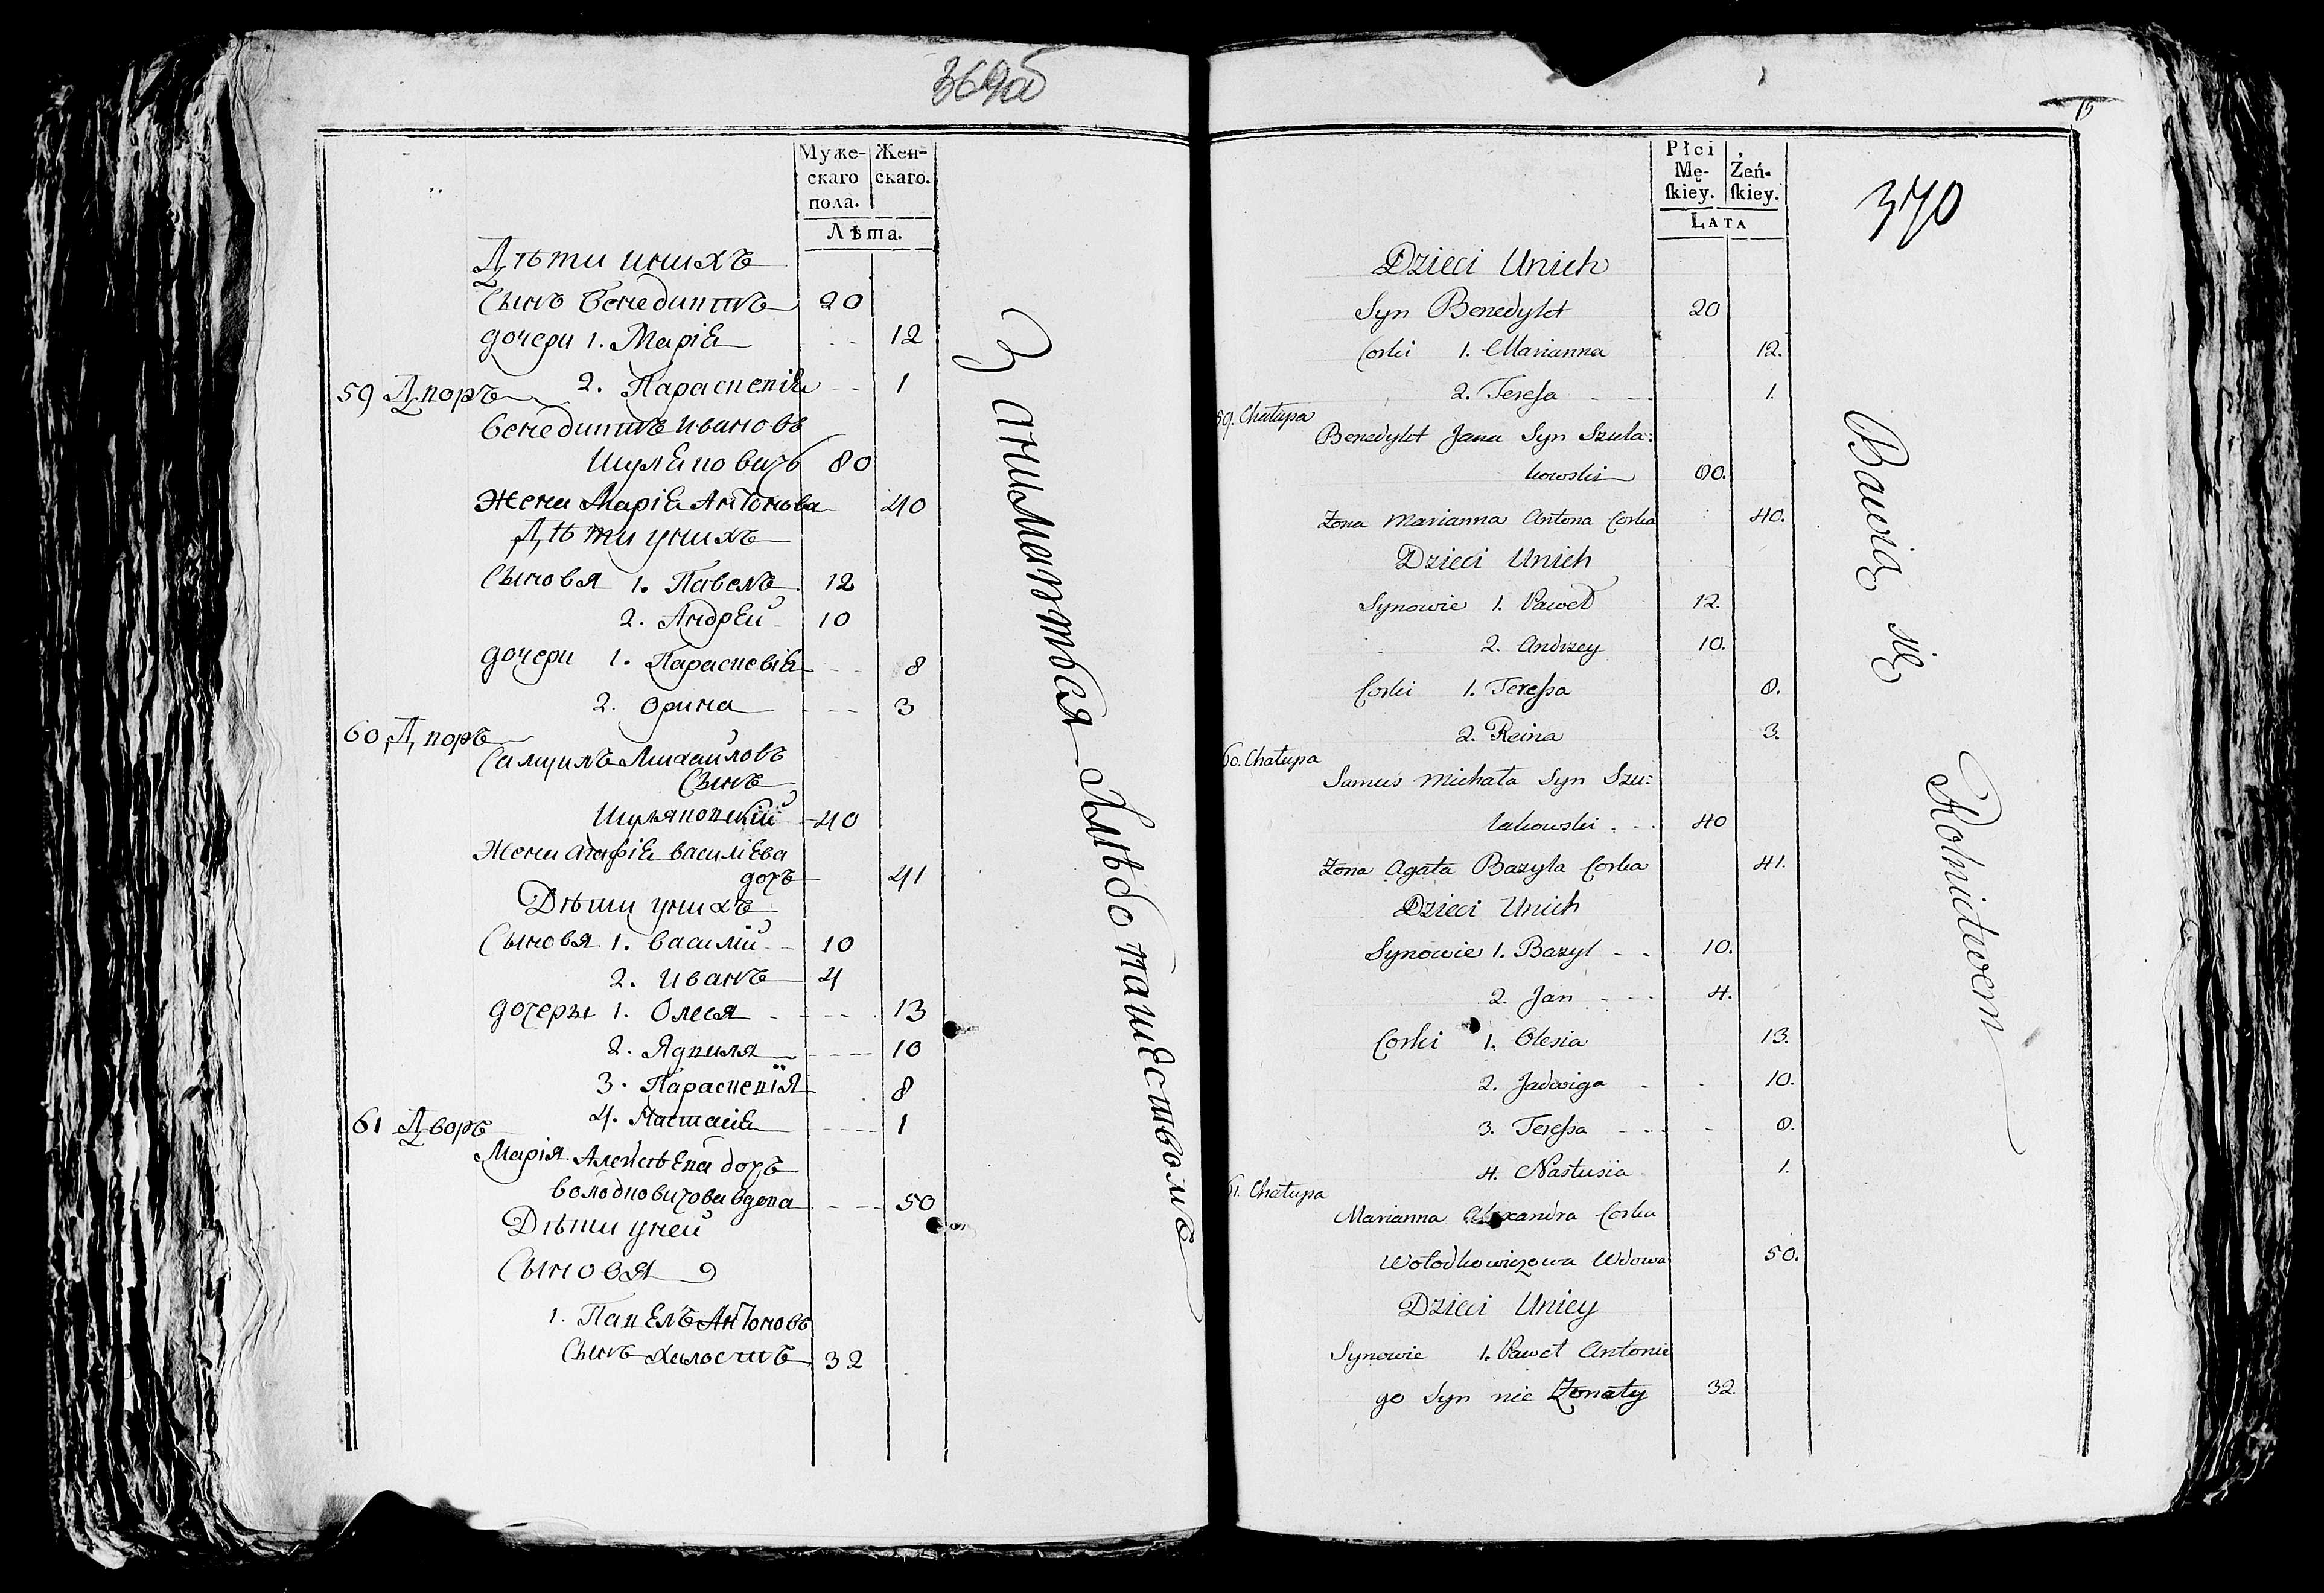 369об
Муже- Жен-
скаго скаго.
пола.
Лѣта.
Дѣти унихъ
Сынъ Бенедиктъ 20
дочери 1. Марiя 12
2. Параскевiя 1
59 Дворъ
Бенедиктъ Ивановъ
Шуляковичъ 80
Жена Марiя Антонова 40
Дѣти унихъ
Сыновя 1. Павелъ 12
2. Андрей 10
дочери 1. Параскевiя 8
2. Орина 3
60 Дворъ
Самуилъ Михайловъ
Сынъ
Шуляковскiй 40
Жена Агафiя Василiева
дочъ 41
Дѣти унихъ
Сыновя 1. Василiй 10
2. Иванъ 4
дочеры 1. Олеся 13
2. Ядвиля 10
3. Параскевiя 8
4. Настасiя 1
61 Дворъ
Марiя Алексѣева дочъ
Володковичова вдова 50
Дѣти уней
Сыновя
1. Павелъ Антоновъ
Сынъ холостъ 32
Занимаются Хлѣбопашествомъ
Płci Żeń-
Mę- ſkiey.
ſkiey.
LATA
370
Dzieci Unich
Syn Benedykt 20
Corki 1. Marianna 12.
2. Teressa 1.
59. Chałupa
Benedykt Jana Syn Szula:
kowski 80.
Zona Marianna Antona Corka 40.
Dzieci Unich
Synowie 1. Paweł 12.
2. Andrzey 10.
Corki 1. Teressa 8.
2. Reina 3.
60. Chałupa
Samuś Michała Syn Szu:
lakowski 40
Zona Agata Bazyla Corka 41.
Dzieci Unich
Synowie 1. Bazyl 10.
2. Jan 4.
Corki 1. Olesia 13.
2. Jadwiga 10.
3. Teressa 8.
4. Nastusia 1.
61. Chałupa
Marianna Alexandra Corka
Wołodkowiczowa Wdowa 50.
Dzieci Uniey
Synowie 1. Paweł Antonie
go Syn nie Zonaty 32
Bawią się Rolnictwem